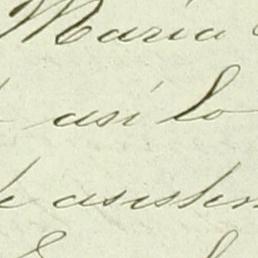 Maria
así lo
asisten